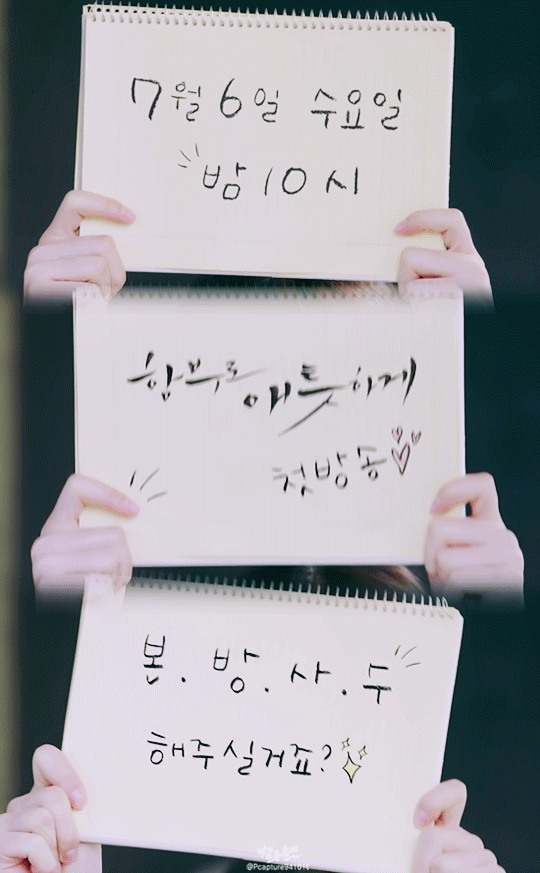 7월 6일 수요일
밤 10시
함부로 애틋하게
첫방송
본.방.사.수
해주실거죠?